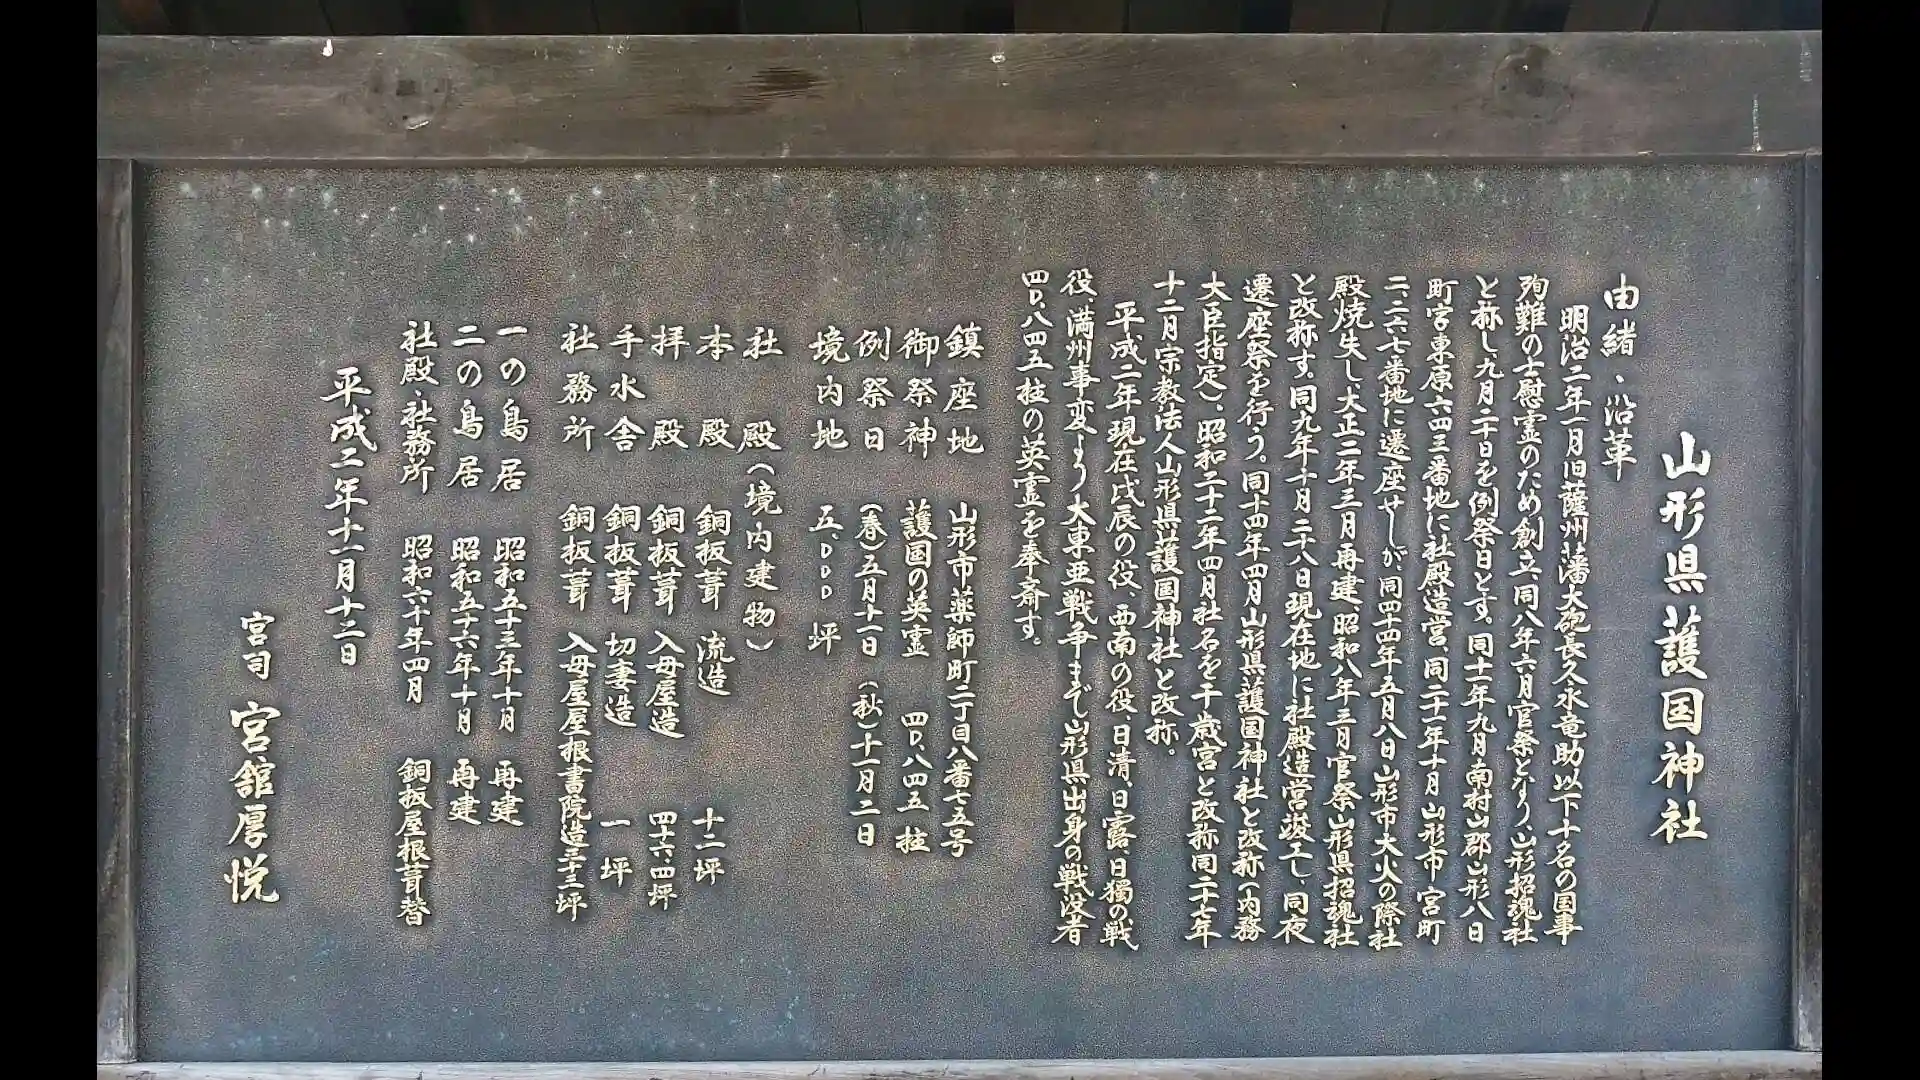 山形県護国神社
由緒、沿革
明治二年一月旧薩州藩大砲長久永竜助以下十名の国事
殉難の士慰霊のため創立、同八年六月官祭となり、山形招魂社
と称し九月二十日を例祭日とす。同十一年九月南村山郡山形八日
町字東原六四三番地に社殿造営、同二十一年十月山形市宮町
二、二六七番地に遷座せしが同四十四年五月八日山形市大火の際社
殿焼失し、大正二年三月再建、昭和八年三月官祭山形県招魂社
と改称す。同九年十月二十八日現在地に社殿造営竣工し、同夜
遷座祭を行う。同十四年四月山形県護国神社と改称(内務
大臣指定)、昭和二十二年四月社名を千歳宮と改称同二十七年
十二月宗教法人山形県護国神社と改称。
平成二年現在戊辰の役、西南の役、日清、日露、日獨の戦
役、満州事変より大東亜戦争まで山形県出身の戦没者
四〇、八四五柱の英霊を奉斎す。
鎮座地 山形市薬師町二丁目八番七五号
御祭神 護国の英霊 四〇、八四五柱
例祭日 (春)五月十一日 (秋)十一月二日
境内地 五、〇〇〇坪
社殿(境内建物)
本殿 銅板葺 流造 十二坪
拝殿 銅板葺 入母屋造 四十六、四坪
手水舎 銅板葺 切妻造 一坪
社務所 銅板葺 入母屋屋根書院造三十三坪
一の鳥居 昭和五十三年十月 再建
二の鳥居 昭和五十六年十月 再建
社殿、社務所 昭和六十年四月 銅板屋根葺替
平成二年十一月十二日
宮司 宮舘厚悦